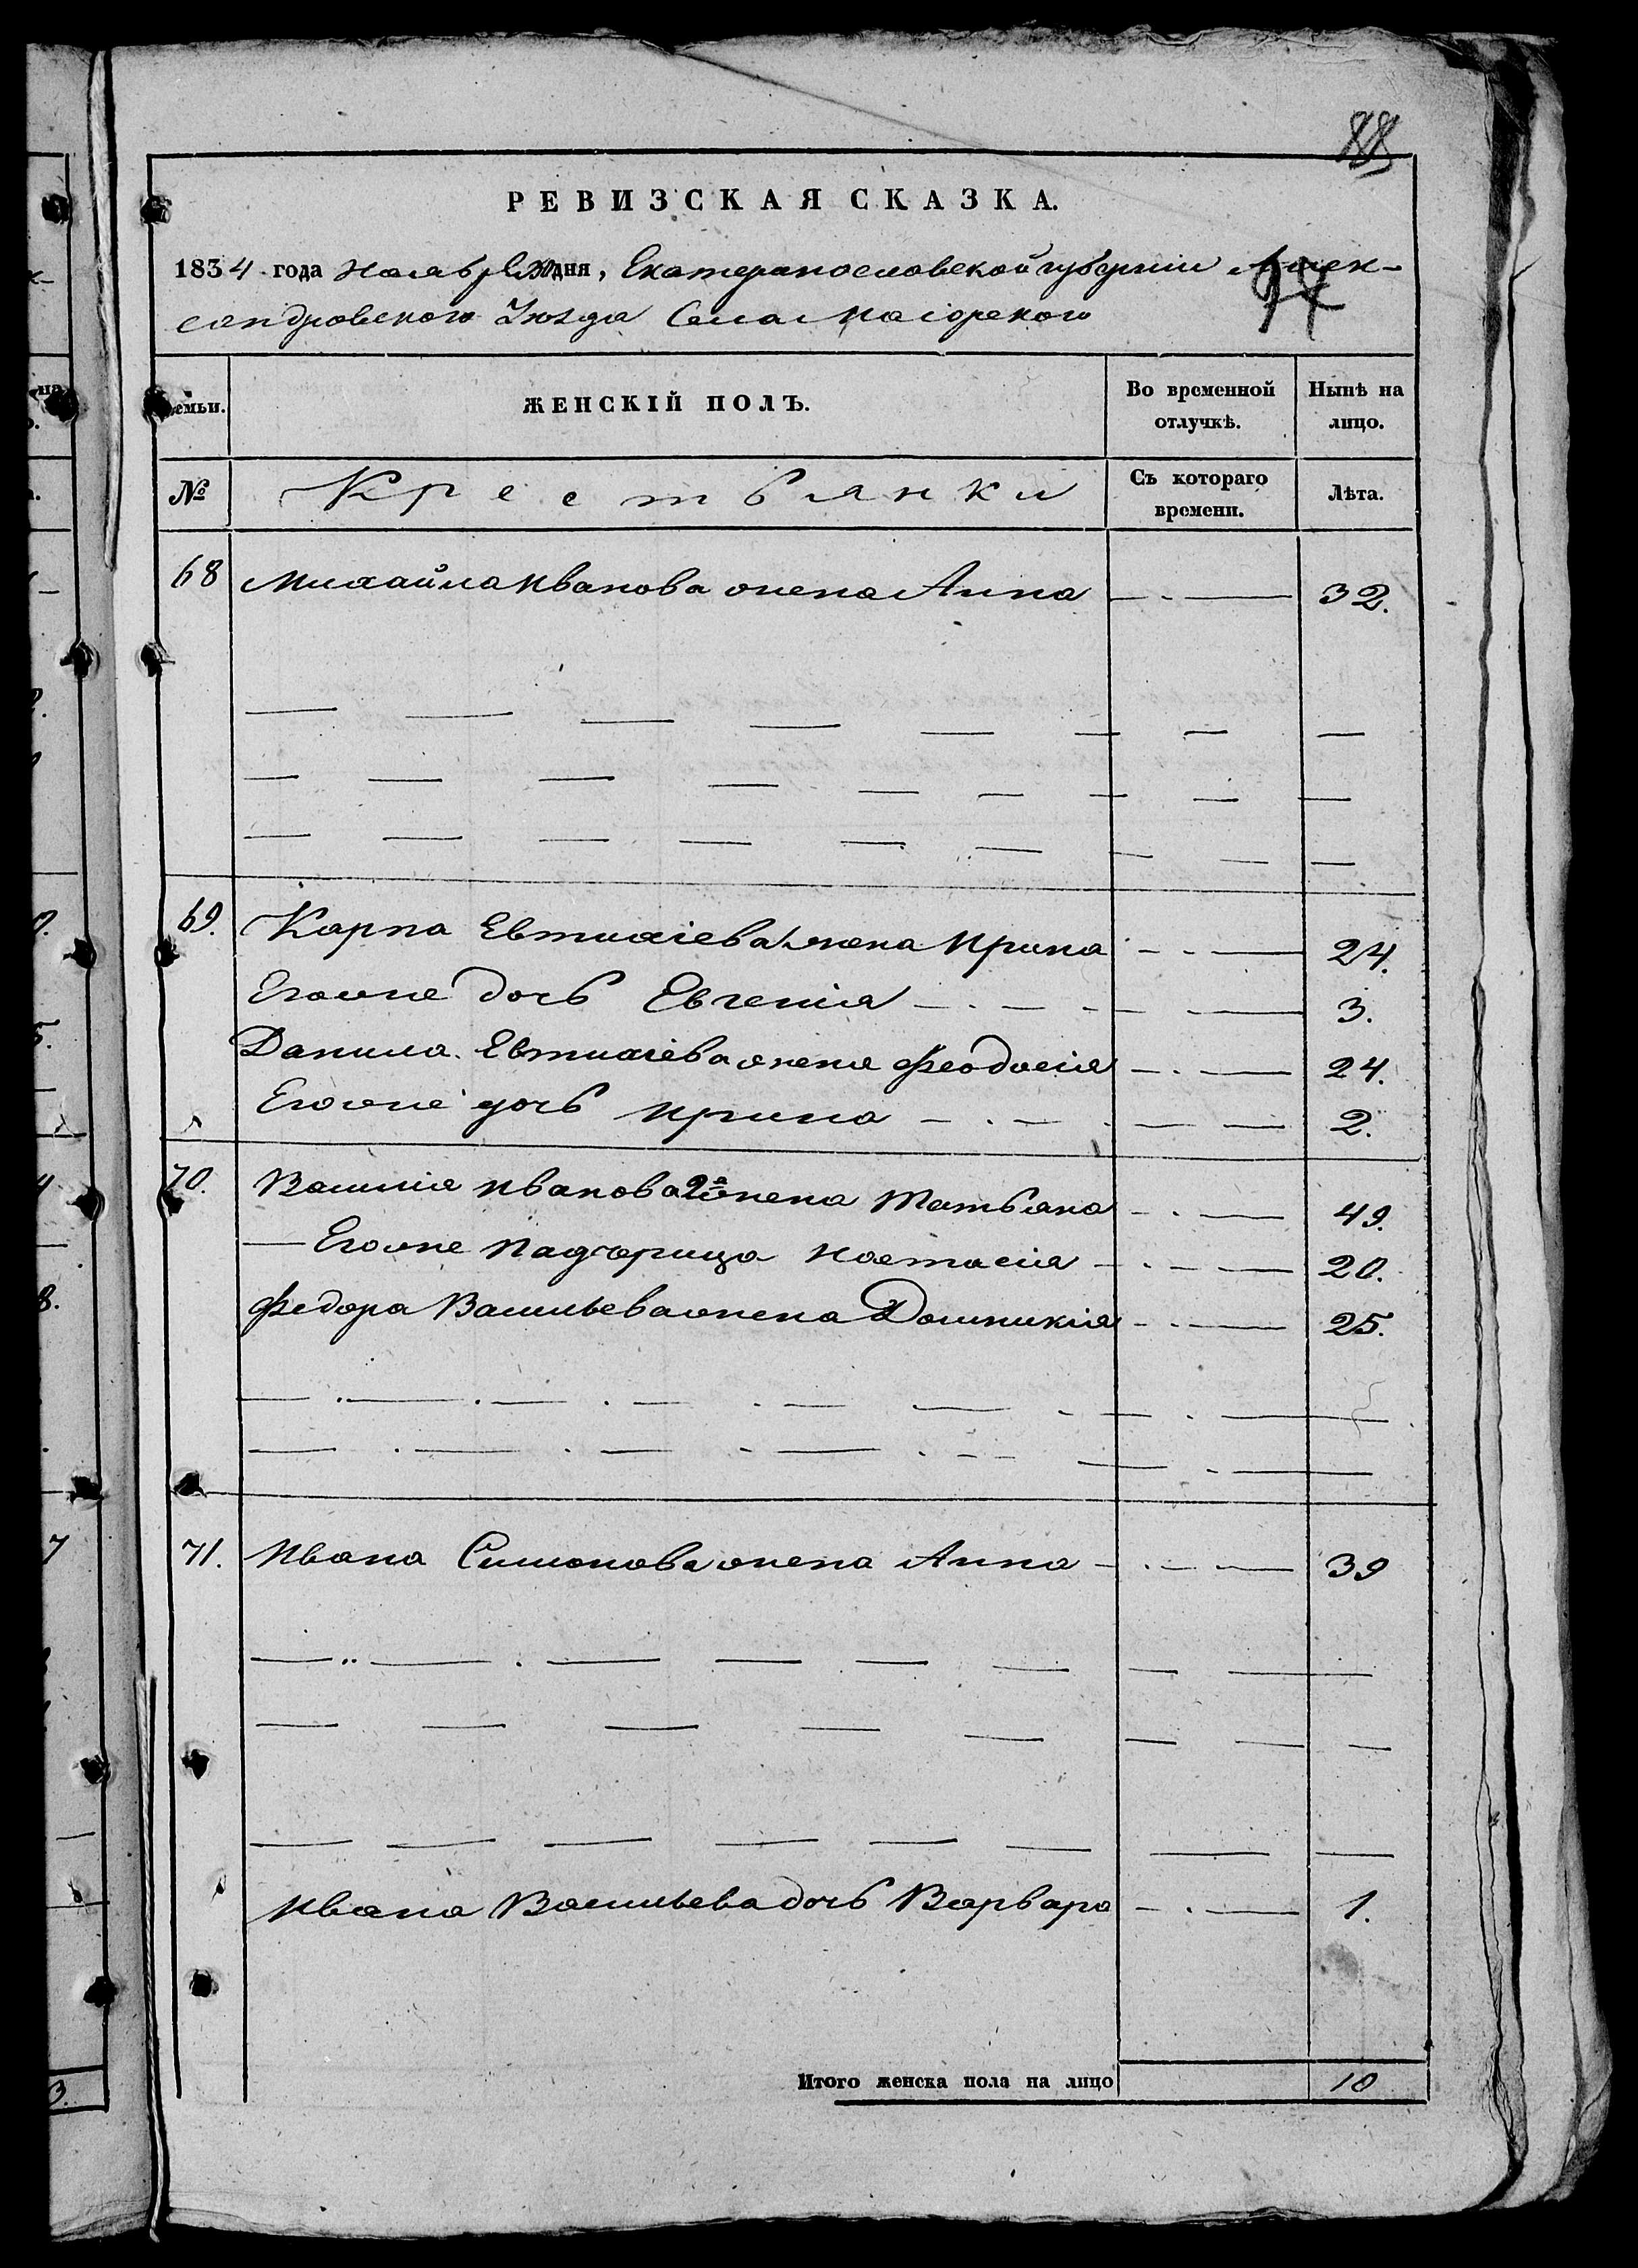 88
РЕВИЗСКАЯ СКАЗКА.
1834 года Ноября 30 дня, Екатеринославской губернiи Алек-
97
сандровского Уѣзда Села Маiорского
Семьи.
ЖЕНСКIЙ ПОЛЪ.
Во временной отлучкѣ.
Нынѣ на лицо.
№
Крестьянки
Съ котораго времени.
Лѣта.
68 Михайла Иванова жена Анна 32.
69. Карпа Евтихiева жена Ирина 24.
Егоже дочь Евгенiя 3.
Данила Евтихiева жена Феодосiя 24.
Егоже дочь Ирина 2.
70. Василiя Иванова 2я жена Татьяна 49.
Егоже Падчерица Настасiя 20.
Федора Васильева жена Домникiя 25.
71. Ивана Симонова жена Анна 39
Ивана Васильева дочь Варвара 1.
Итого женска пола на лицо 10